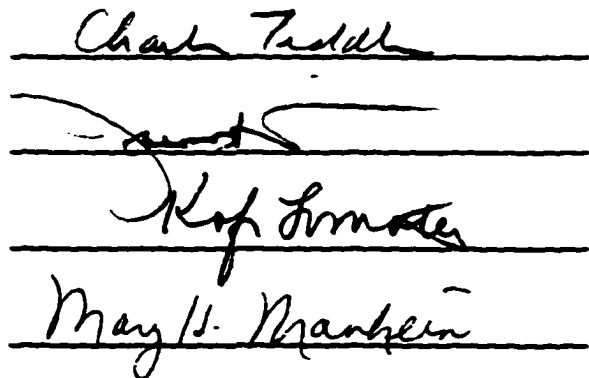 Charles Teddlie
Kofi Lomotey
Mary H. Manhein